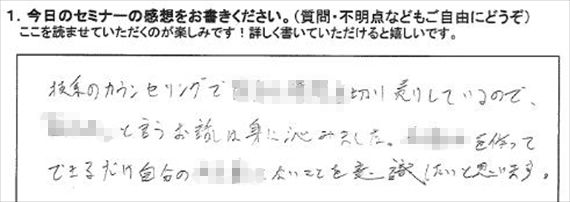 1. 今日のセミナーの感想をお書きください。（質問・不明点などもご自由にどうぞ）
ここを読ませていただくのが楽しみです！詳しく書いていただけると嬉しいです。
のカウンセリングで 切り売りしているので、
と言うお話は身に沁みました。 を作って
できるだけ自分の ないことを意識したいと思います。